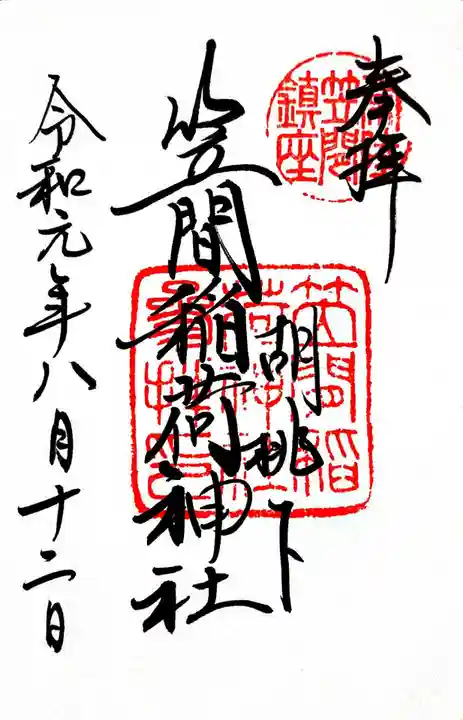 奉拝
笠間
鎮座
胡桃下
笠間稲荷神社
令和元年八月十二日